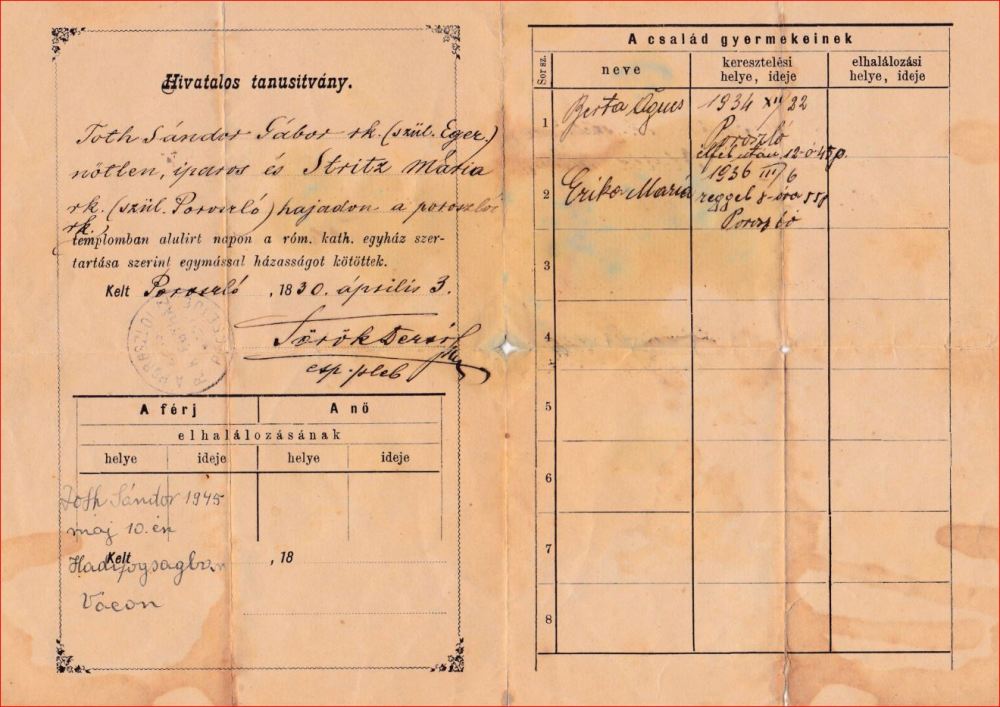 Hivatalos tanusitvány.
Toth Sándor Gábor rk. (szül. Eger.)
nőtlen, iparos és Stritz Mária
rk. (szül. Poroszló) hajadon a poroszlói
rk.
templomban alulirt napon a róm. kath. egyház szer-
tartása szerint egymással házasságot kötöttek.
Kelt Poroszló, 1830. április 3.
Török Dezső
esp. pleb
A férj A nő
elhalálozásának
helye ideje helye ideje
Toth Sándor 1945
maj 10.én
Kelt , 18
Hadifogságban
Vácon
A család gyermekeinek
Sor sz. neve keresztelési helye, ideje elhalálozási helye, ideje
1 Berta Ágnes 1934 XII/22
Poroszló
éjfél után 12-ó 45p.
2 Erika Mária 1936 III/6
reggel 8-óra 55
Poroszló
3
4
5
6
7
8